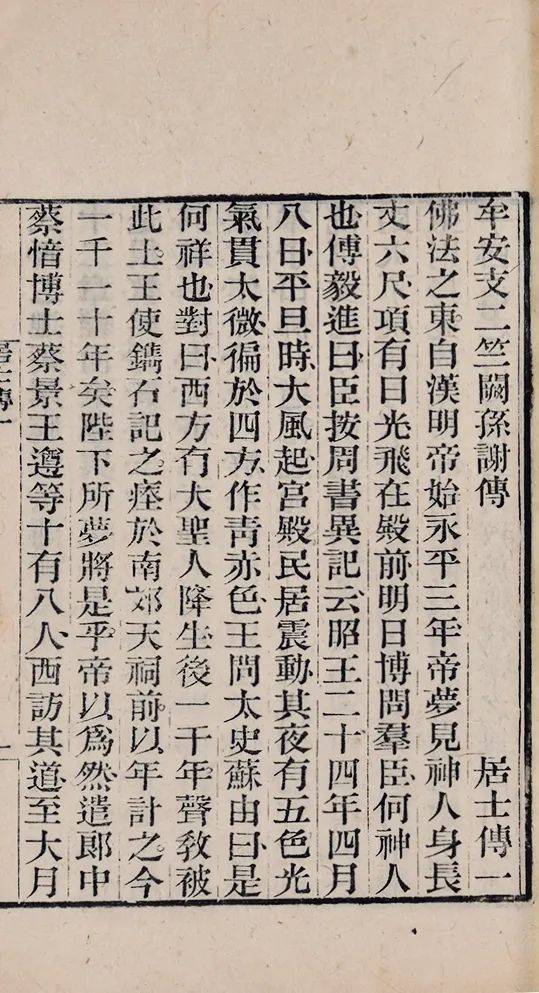 牟安支二竺闕孫謝傳 居士傳一
佛法之東自漢明帝始永平三年帝夢見神人身長
丈六尺項有日光飛在殿前明日博問羣臣何神人
也傅毅進曰臣按周書異記云昭王二十四年四月
八日平旦時大風起宮殿民居震動其夜有五色光
氣貫太微徧於四方作青赤色王問太史蘇由曰是
何祥也對曰西方有大聖人降生後一千年聲教被
此土王使鐫石記之瘞於南郊天祠前以年計之今
一千一十年矣陛下所夢將是乎帝以爲然遣郎中
蔡愔博士蔡景王遵等十有八人西訪其道至大月
居士傳一
一